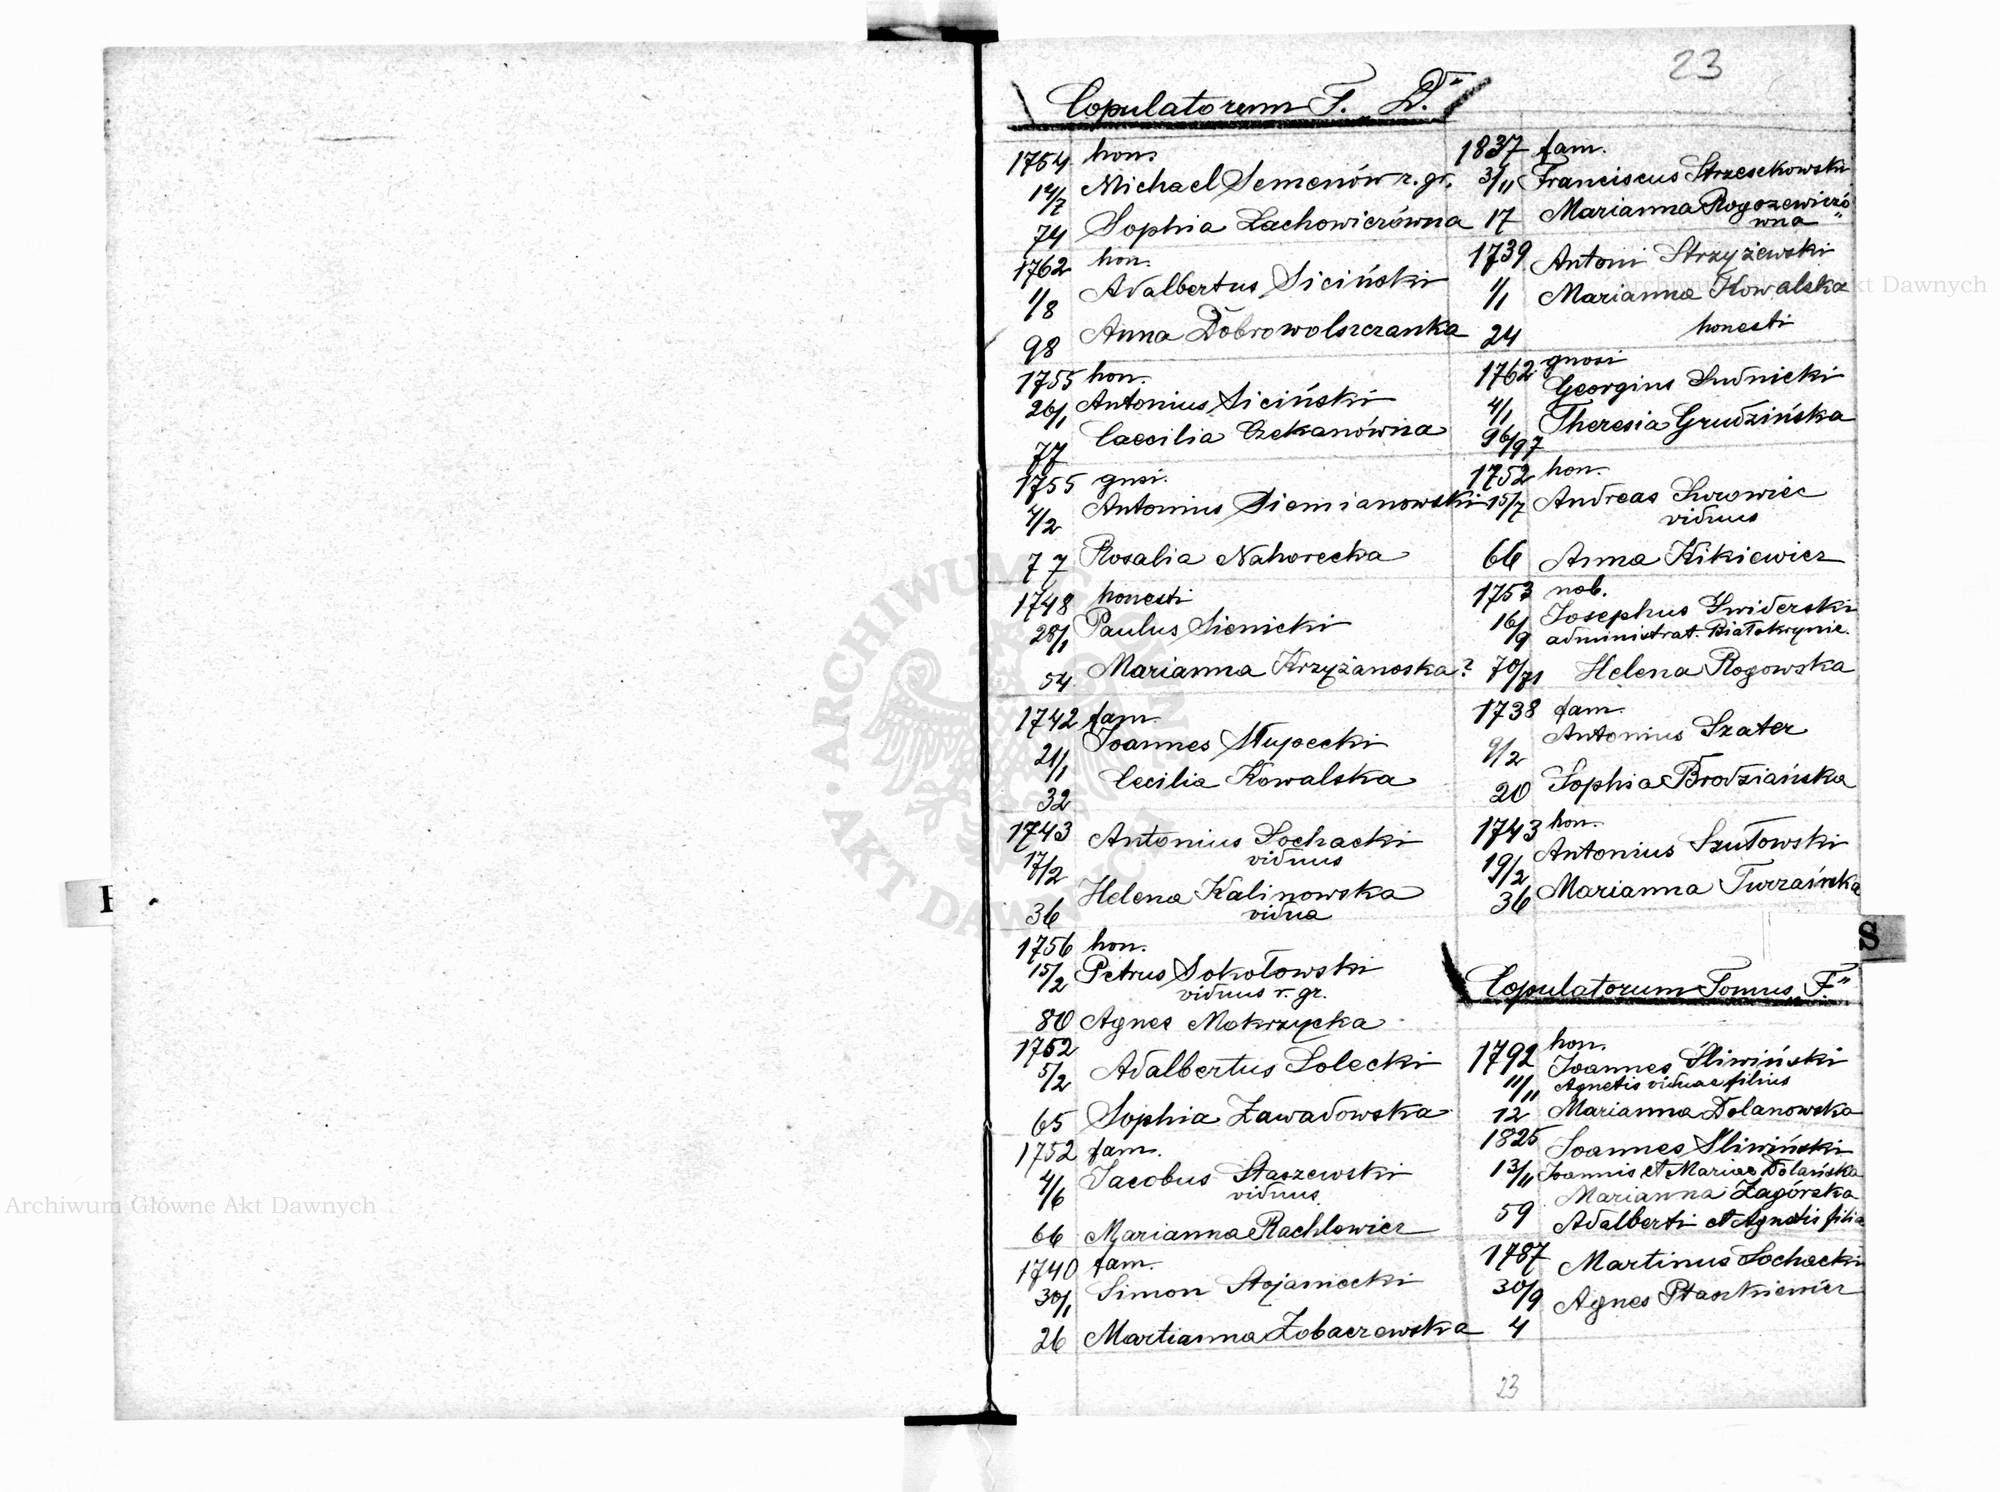 23
Copulatorum T. „D."
1754 hon.
12/7 Michael Semenów r. gr.
74 Sophia Lachowiczówna
1762 hon.
1/8 Adalbertus Siciński
98 Anna Dobrowolszczanka
1755 hon.
26/1 Antonius Siciński
77 Caecilia Czekanówna
1755 gnsi.
4/2 Antonius Siemianowski
77 Rosalia Nahorecka
1748 honesti
28/1 Paulus Sienicki
54 Marianna Krzyżanoska?
1742 fam.
21/1 Joannes Słupecki
32 Cecilia Kowalska
1743 Antonius Sochacki
17/2 viduus
36 Helena Kalinowska
vidua
1756 hon.
15/2 Petrus Sokołowski
viduus r. gr.
80 Agnes Mokrzycka
1752
5/2 Adalbertus Solecki
65 Sophia Zawadowska
1752 fam.
4/6 Jacobus Staszewski
viduus
66 Marianna Rachlewicz
1740 fam.
30/1 Simon Stojaniecki
26 Martianna Łobaczewska
1837 fam.
3/11 Franciscus Strzeskowski
17 Marianna Rogozewiczó
wna "
1739 Antoni Strzyżewski
1/1 Marianna Kowalska
24 honesti
1762 gnosi
Georgius Sudnicki
4/1 Theresia Grudzińska
96/97
1752 hon.
15/7 Andreas Surowiec
viduus
66 Anna Kikiewicz
1753 nob.
16/9 Josephus Swiderski
administrat. Białokrynic.
70/71 Helena Rogowska
1738 fam.
9/2 Antonius Szater
20 Sophia Brodziańska
1743 hon.
19/2 Antonius Szutowski
36 Marianna Turzańska
Copulatorum Tomus „F"
1792 hon.
Joannes Śliwiński
11/11 Agnetis viduae filius
12 Marianna Dolanowska
1825 Joannes Śliwiński
13/11 Joannis et Mariae Dolańska
Marianna Zagórska
59 Adalberti et Agnetis filia
1787 Martinus Sochacki
30/9 Agnes Ptaszkiewicz
4
23
S
ARCHIWUM GŁÓWNE AKT DAWNYCH
Archiwum Główne Akt Dawnych
Archiwum Główne Akt Dawnych